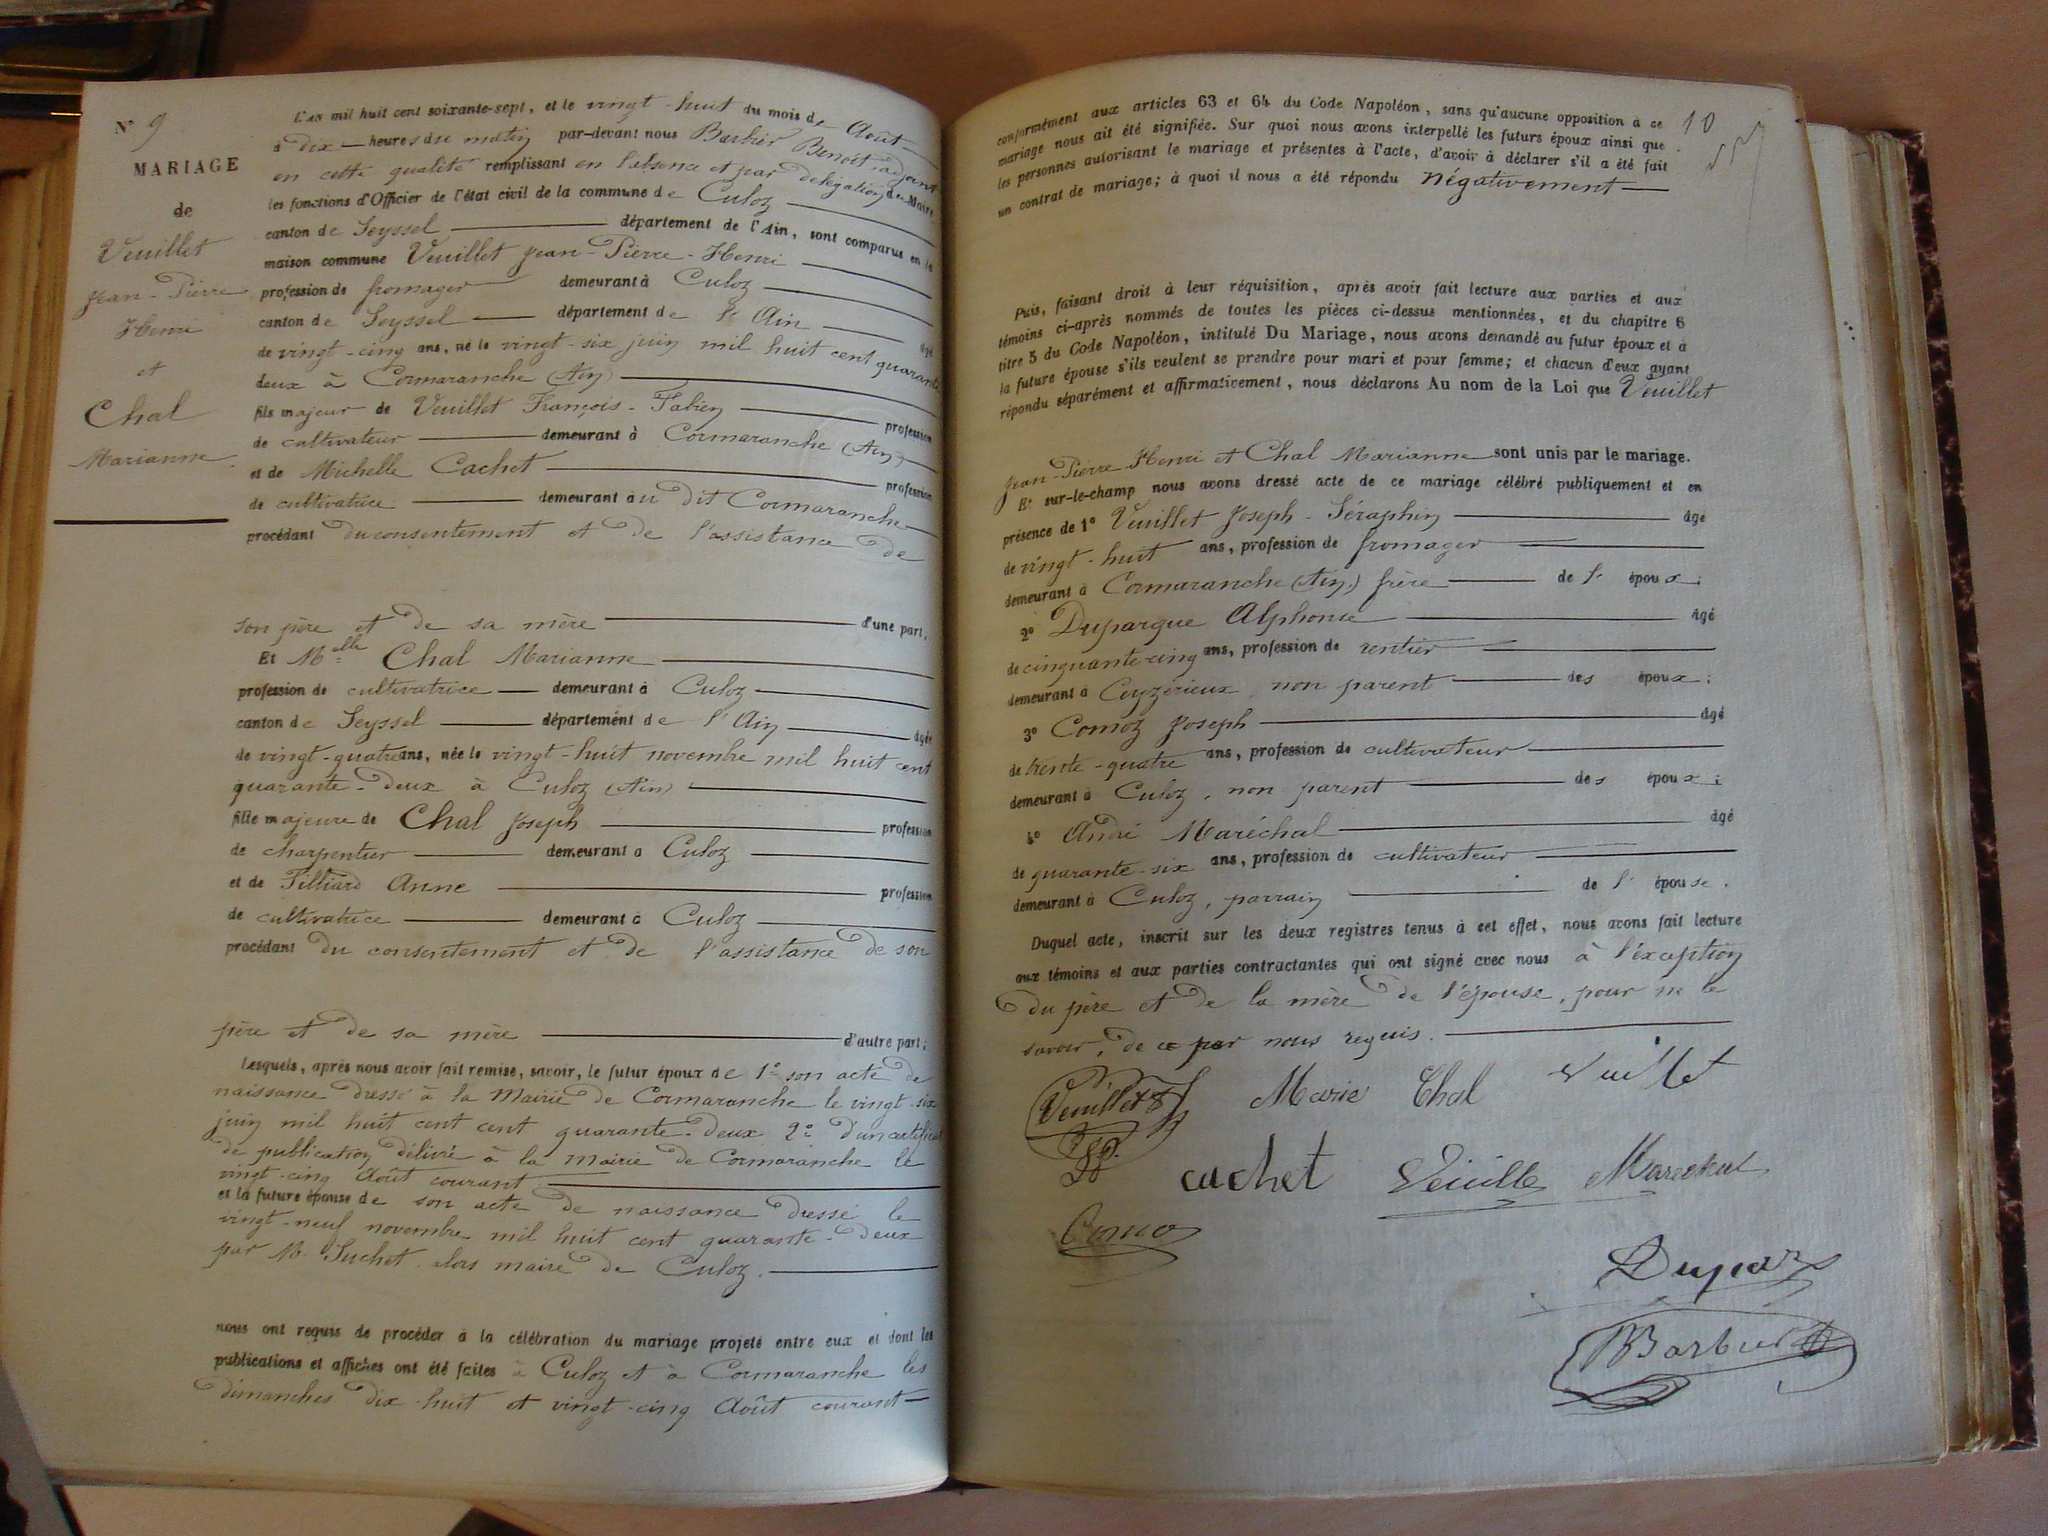 N° 9
MARIAGE
de
Veuillet
Jean-Pierre
Henri
et
Chal
Marianne
L'an mil huit cent soixante-sept, et le vingt-huit du mois de Août
à dix heures du matin par-devant nous Barbier Benoit adjoint
en cette qualité remplissant en l'absence et par délégation du Maire
les fonctions d'Officier de l'état civil de la commune de Culoz
canton de Seyssel département de l'Ain, sont comparus en la
maison commune Veuillet Jean-Pierre-Henri
profession de fromager demeurant à Culoz
canton de Seyssel département de l'Ain âgé
de vingt-cinq ans, né le vingt-six juin mil huit cent quarante
deux à Cormaranche (Ain)
fils majeur de Veuillet François-Fabien profession
de cultivateur demeurant à Cormaranche (Ain)
et de Michelle Cachet profession
de cultivatrice demeurant à u dit Cormaranche
procédant du consentement et de l'assistance de
son père et de sa mère d'une part,
Et Melle Chal Marianne
profession de cultivatrice demeurant à Culoz
canton de Seyssel département de l'Ain âgée
de vingt-quatre ans, née le vingt-huit novembre mil huit cent
quarante-deux à Culoz (Ain)
fille majeure de Chal Joseph profession
de charpentier demeurant à Culoz
et de Filliard Anne profession
de cultivatrice demeurant à Culoz
procédant du consentement et de l'assistance de son
père et de sa mère d'autre part;
Lesquels, après nous avoir fait remise, savoir, le futur époux de 1° son acte de
naissance dressé à la Mairie de Cormaranche le vingt-six
juin mil huit cent cent quarante-deux 2° d'un certificat
de publication délivré à la Mairie de Cormaranche le
vingt-cinq Août courant
et la future épouse de son acte de naissance dressé le
vingt-neuf novembre mil huit cent quarante-deux
par Mr Suchet alors maire de Culoz.
nous ont requis de procéder à la célébration du mariage projeté entre eux et dont les
publications et affiches ont été faites à Culoz et à Cormaranche les
dimanches dix-huit et vingt-cinq Août courant
10
conformément aux articles 63 et 64 du Code Napoléon, sans qu'aucune opposition à ce
mariage nous ait été signifiée. Sur quoi nous avons interpellé les futurs époux ainsi que
les personnes autorisant le mariage et présentes à l'acte, d'avoir à déclarer s'il a été fait
un contrat de mariage; à quoi il nous a été répondu négativement
Puis, faisant droit à leur réquisition, après avoir fait lecture aux parties et aux
témoins ci-après nommés de toutes les pièces ci-dessus mentionnées, et du chapitre 6
titre 5 du Code Napoléon, intitulé Du Mariage, nous avons demandé au futur époux et à
la future épouse s'ils veulent se prendre pour mari et pour femme; et chacun d'eux ayant
répondu séparément et affirmativement, nous déclarons Au nom de la Loi que Veuillet
Jean-Pierre Henri et Chal Marianne sont unis par le mariage.
Et sur-le-champ nous avons dressé acte de ce mariage célébré publiquement et en
présence de 1° Veuillet Joseph-Séraphin âgé
de vingt-huit ans, profession de fromager
demeurant à Cormaranche (Ain) frère de l' époux;
2° Duparque Alphonse âgé
de cinquante-cinq ans, profession de rentier
demeurant à Ceyzérieux, non parent des époux;
3° Comoz Joseph âgé
de trente-quatre ans, profession de cultivateur
demeurant à Culoz, non parent des époux;
4° André Maréchal âgé
de quarante-six ans, profession de cultivateur
demeurant à Culoz, parrain de l' épouse.
Duquel acte, inscrit sur les deux registres tenus à cet effet, nous avons fait lecture
aux témoins et aux parties contractantes qui ont signé avec nous à l'éxception
du père et de la mère de l'épouse, pour ne le
savoir, de ce par nous requis.
Veuillet Marie Chal Vuillet
cachet Maréchal
Comoz
Dupar
Barbier